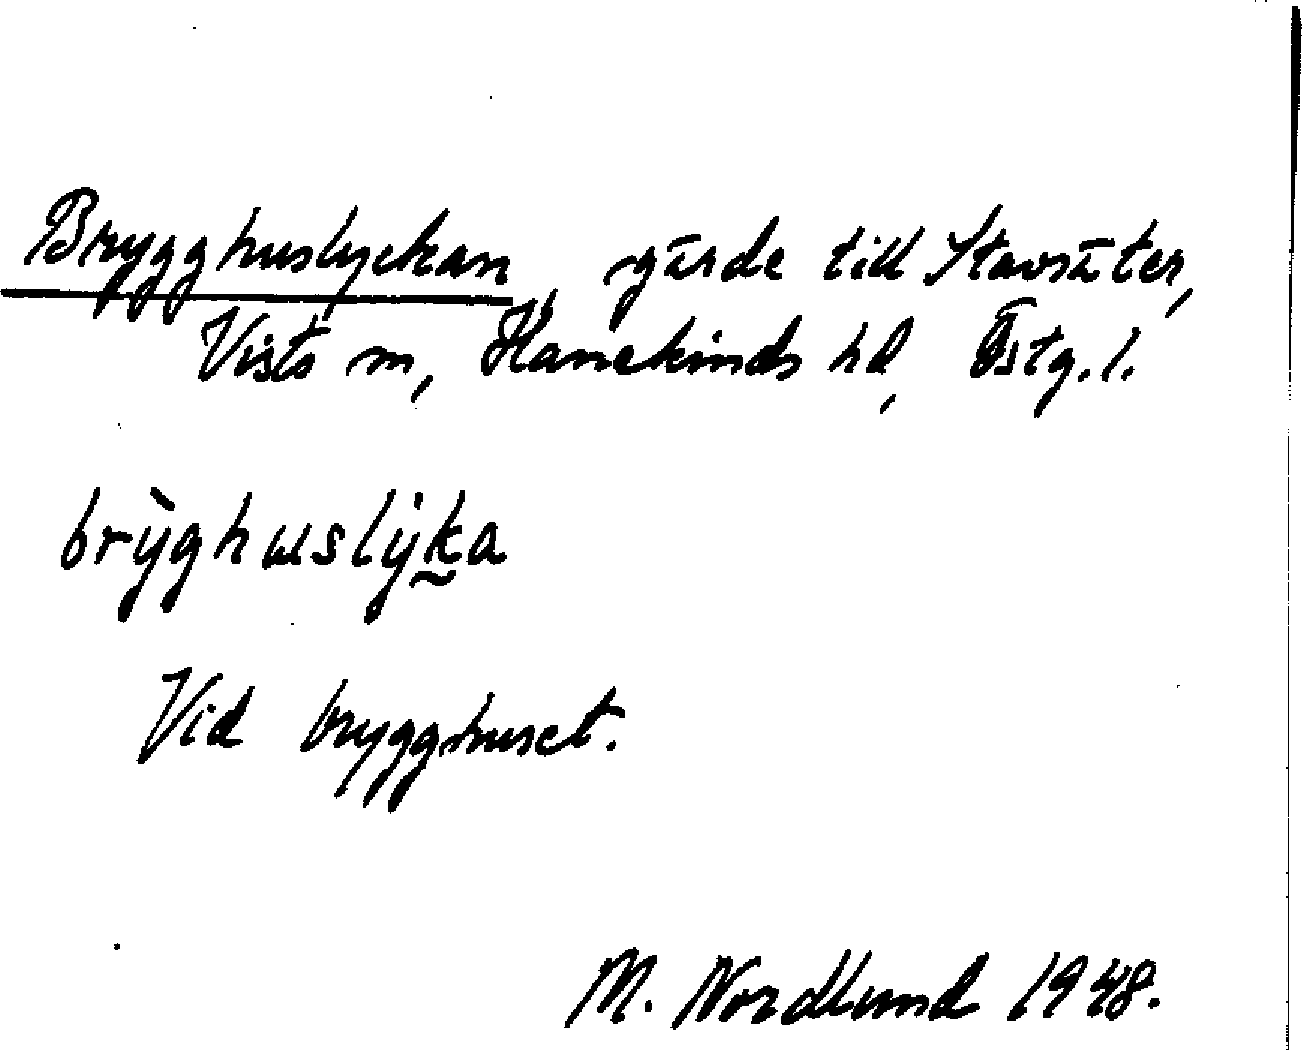 Brygghuslyckan, gärde till Stavsäter,
Viſto sn, Hanekinds hd, Östg. l.
brỳghusly̍ka̰
Vid brygghuset.
M. Nordlund 1948.